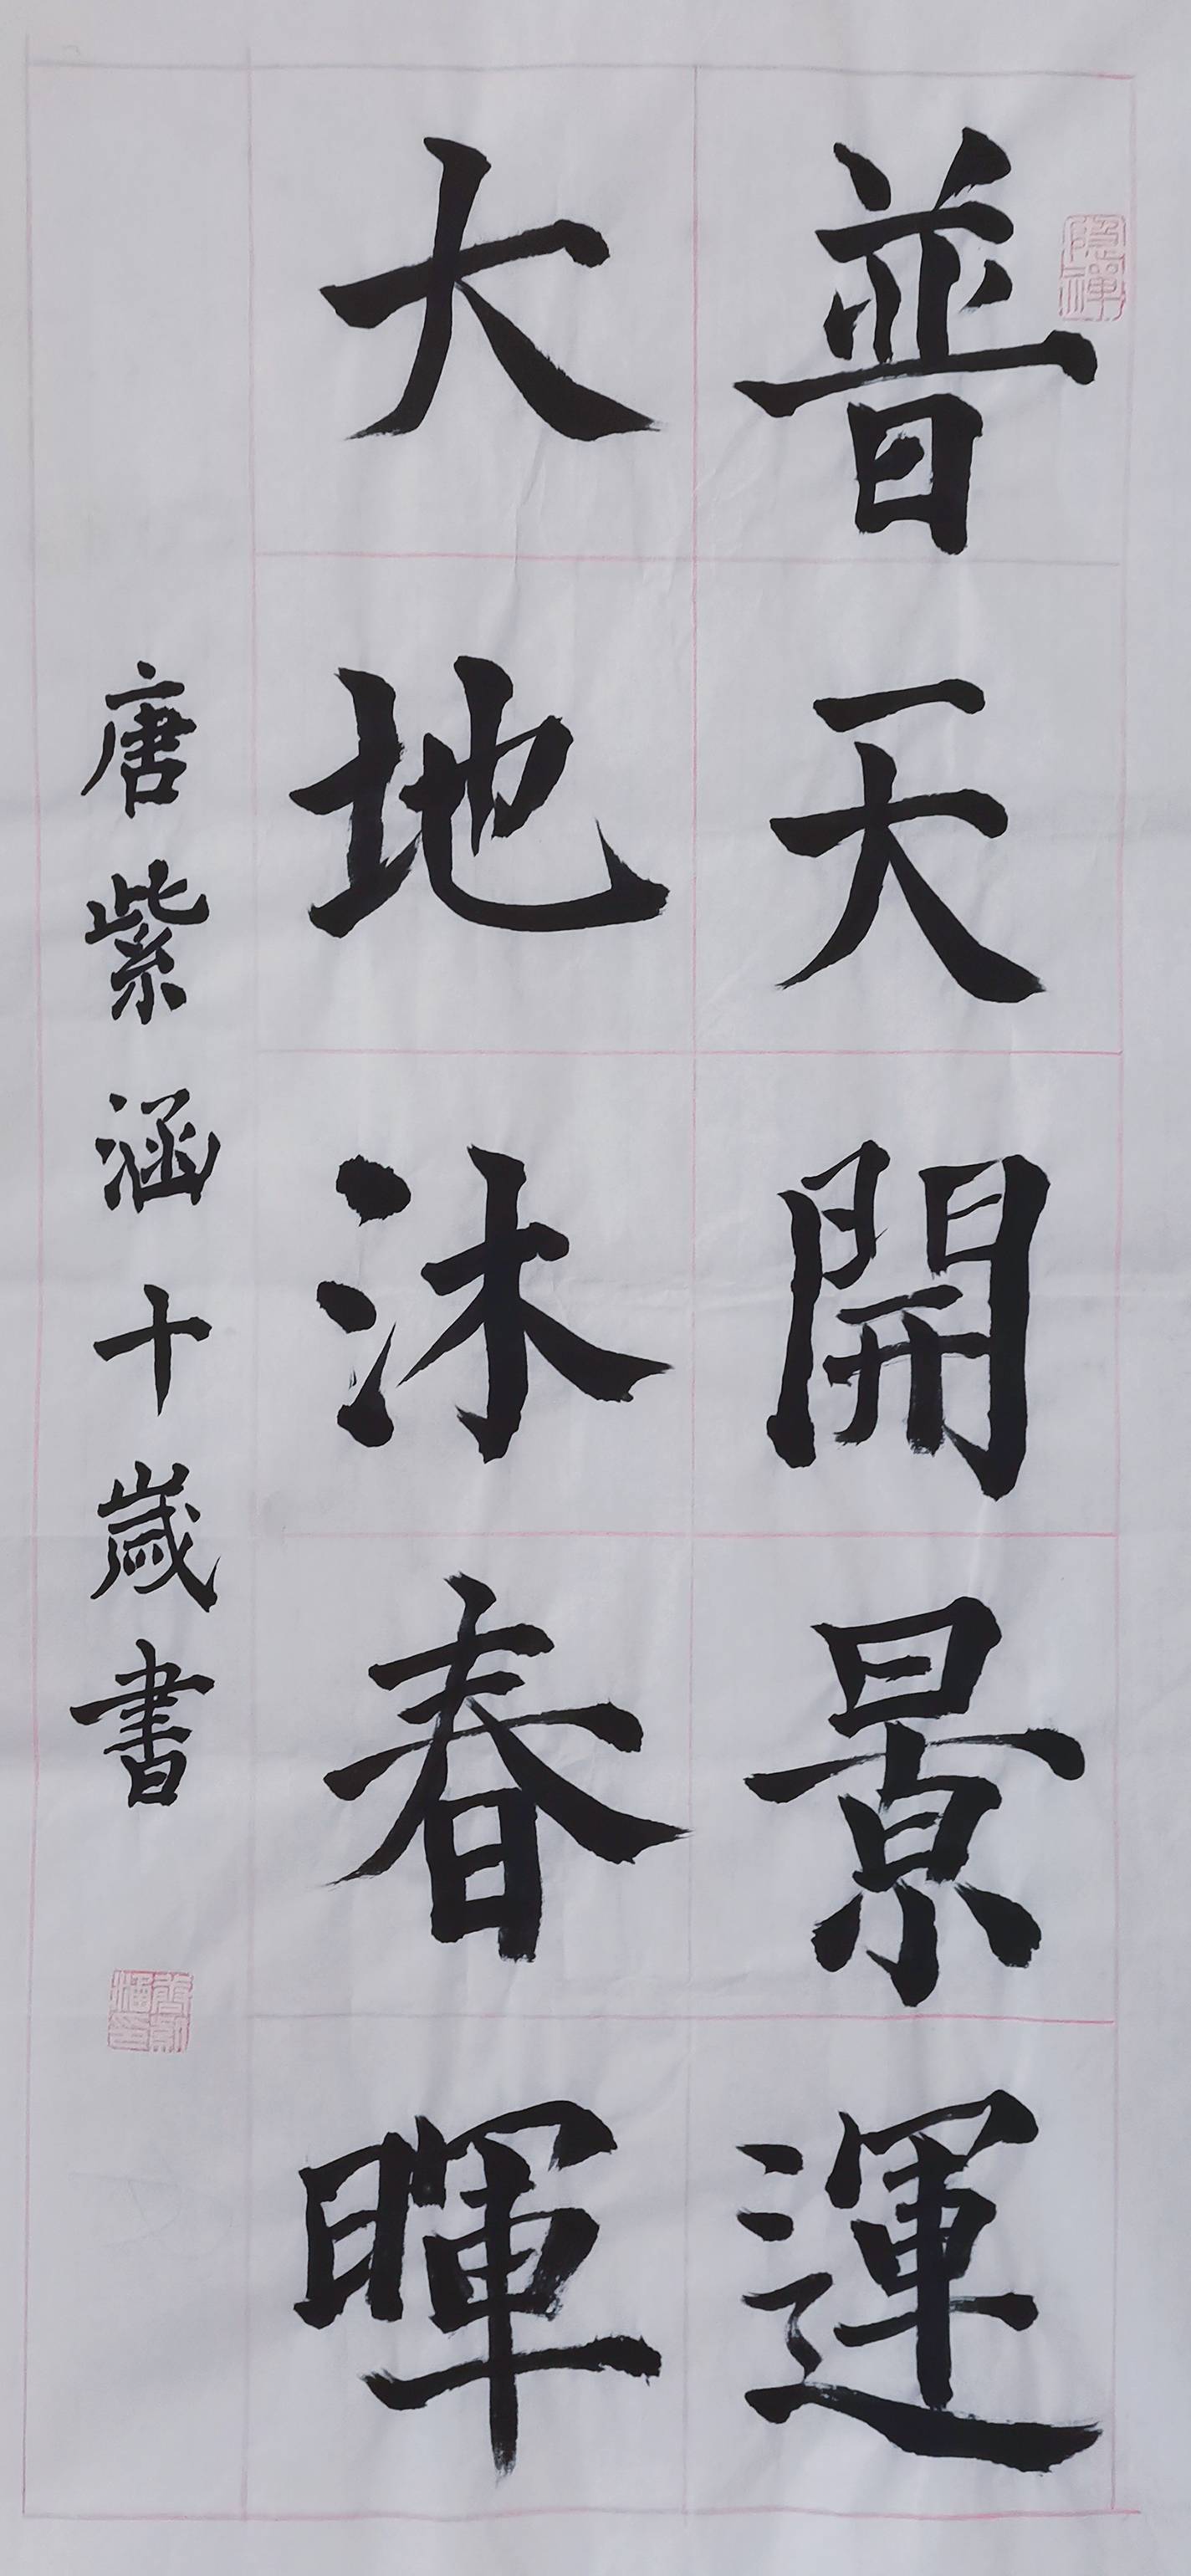 普天開景運
大地沐春暉
唐紫涵十歲書